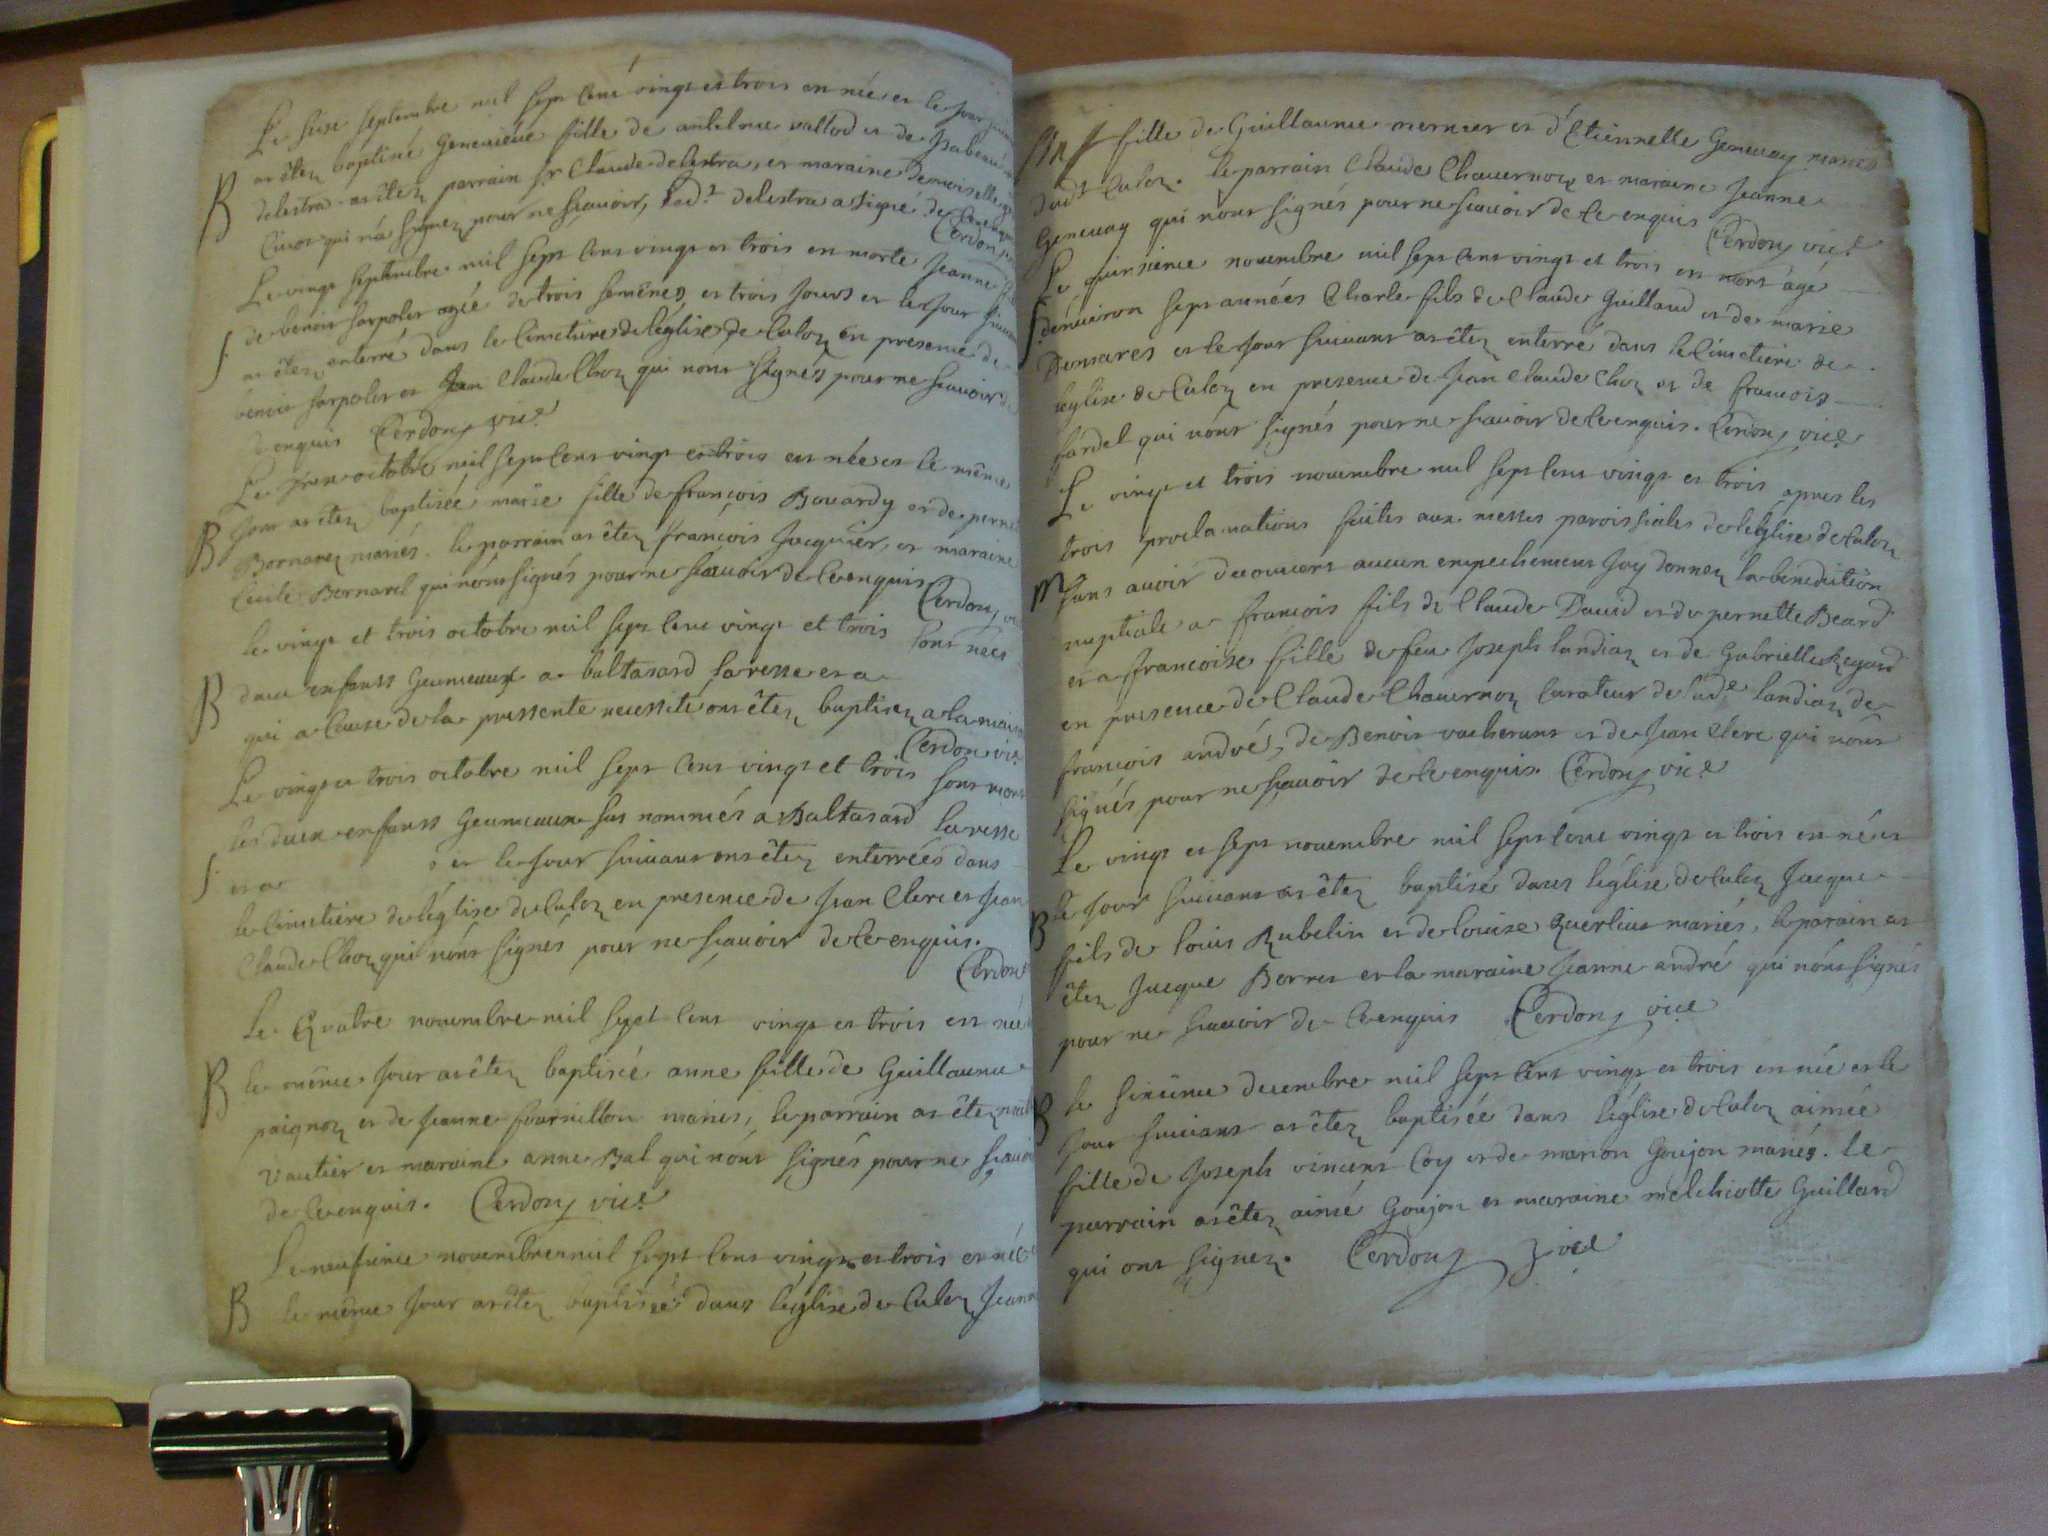 Le seise septembre mil sept cent vingt et trois est née et le jour
B at êtez baptisé Genevieve fille de antelme vallod et de Isabeau
delestra at êtez parrain sr Claude delestra, et maraine demoiselle
qui n'a signez pour ne scavoir, led.t delestra a signé de ce enquis
Cerdon
Le vingt septembre mil sept cent vingt et trois est morte Jeanne
S de benoit sarpolet agée de trois semênes et trois jours et le jour suivant
at êtez enterré dans le Cimetiere de l'église de Culoz en presence de
benoit sarpolet et Jean Claude Choz qui n'ont signés pour ne scavoir de
ce enquis Cerdon vic.e
Le octobre mil sept cent vingt et trois est née et le même
B jour at êtez baptisée marie fille de françois Bovardy et de perne
Bornarel mariés. le parrain at êtez françois Jacquier, et maraine
Cecile Bornarel qui n'ont signés pour ne scavoir de ce enquis Cerdon vic
le vingt et trois octobre mil sept cent vingt et trois sont nees
B deux enfants Geumeaux a baltasard laresse et a
qui a cause de la pressente necessité ont êtez baptisez a la maison
Cerdon vic.e
Le vingt et trois octobre mil sept cent vingt et trois sont morts
les deux enfants Geumeaux sus nommés a Baltasard laresse
S et a et le jour suivant ont êtez enterrées dans
le Cimetiere de l'église de Culoz en presence de Jean Clerc et Jean
Claude Choz qui n'ont signés pour ne scavoir de ce enquis.
Cerdon
Le Quatre novembre mil sept cent vingt et trois est née
B le même jour at êtez baptisée anne fille de Guillaume
paignoz et de Jeanne fournillon mariés, le parrain at êtez
Vautier et maraine anne Bal qui n'ont signés pour ne scavoir
de ce enquis. Cerdon vic.e
Le neufieme novembre mil sept cent vingt et trois est née
B le même jour at êtez baptisée dans l'église de Culoz Jeanne
fille de Guillaume mercier et d'Etiennette Genevay mariés
dud.t Culoz. le parrain Claude Chavernoz et maraine Jeanne
Genevay qui n'ont signés pour ne scavoir de ce enquis Cerdon vic.e
Le quinsieme novembre mil sept cent vingt et trois est mort âgé
S d'environ sept années Charle fils de Claude Guillaud et de marie
Demares et le jour suivant at êtez enterré dans le Cimetiere de
l'église de Culoz en presence de Jean Claude Choz et de francois
fardel qui n'ont signés pour ne scavoir de ce enquis. Cerdon vic.e
Le vingt et trois novembre mil sept cent vingt et trois apres les
trois proclamations faites aux messes paroissiales de l'église de Culoz
M sans avoir decouvert aucun empechement J'ay donnez la benediction
nuptiale a francois fils de Claude David et de pernette Beard
et a francoise fille de feu Joseph landiaz et de Gabrielle Regard
en presence de Claude Chavernoz Curateur de lad.e landiaz de
francois andré, de Benoit vacherant et de Jean Clerc qui n'ont
signés pour ne scavoir de ce enquis. Cerdon vic.e
Le vingt et sept novembre mil sept cent vingt et trois est né et
le jour suivant at êtez baptisé dans l'église de Culoz Jacque
B fils de louis Rubelin et de louise Querlius mariés, le parain at
êtez Jacque Borres et la maraine Jeanne andré qui n'ont signés
pour ne scavoir de ce enquis Cerdon vic.e
le sixieme decembre mil sept cent vingt et trois est née et le
B jour suivant at êtez baptisée dans l'église de Culoz aimée
fille de Joseph vincent Coy et de marion Goujon mariés. le
parrain at êtez aimé Goujon et maraine melchiotte Guillard
qui ont signez. Cerdon vic.e